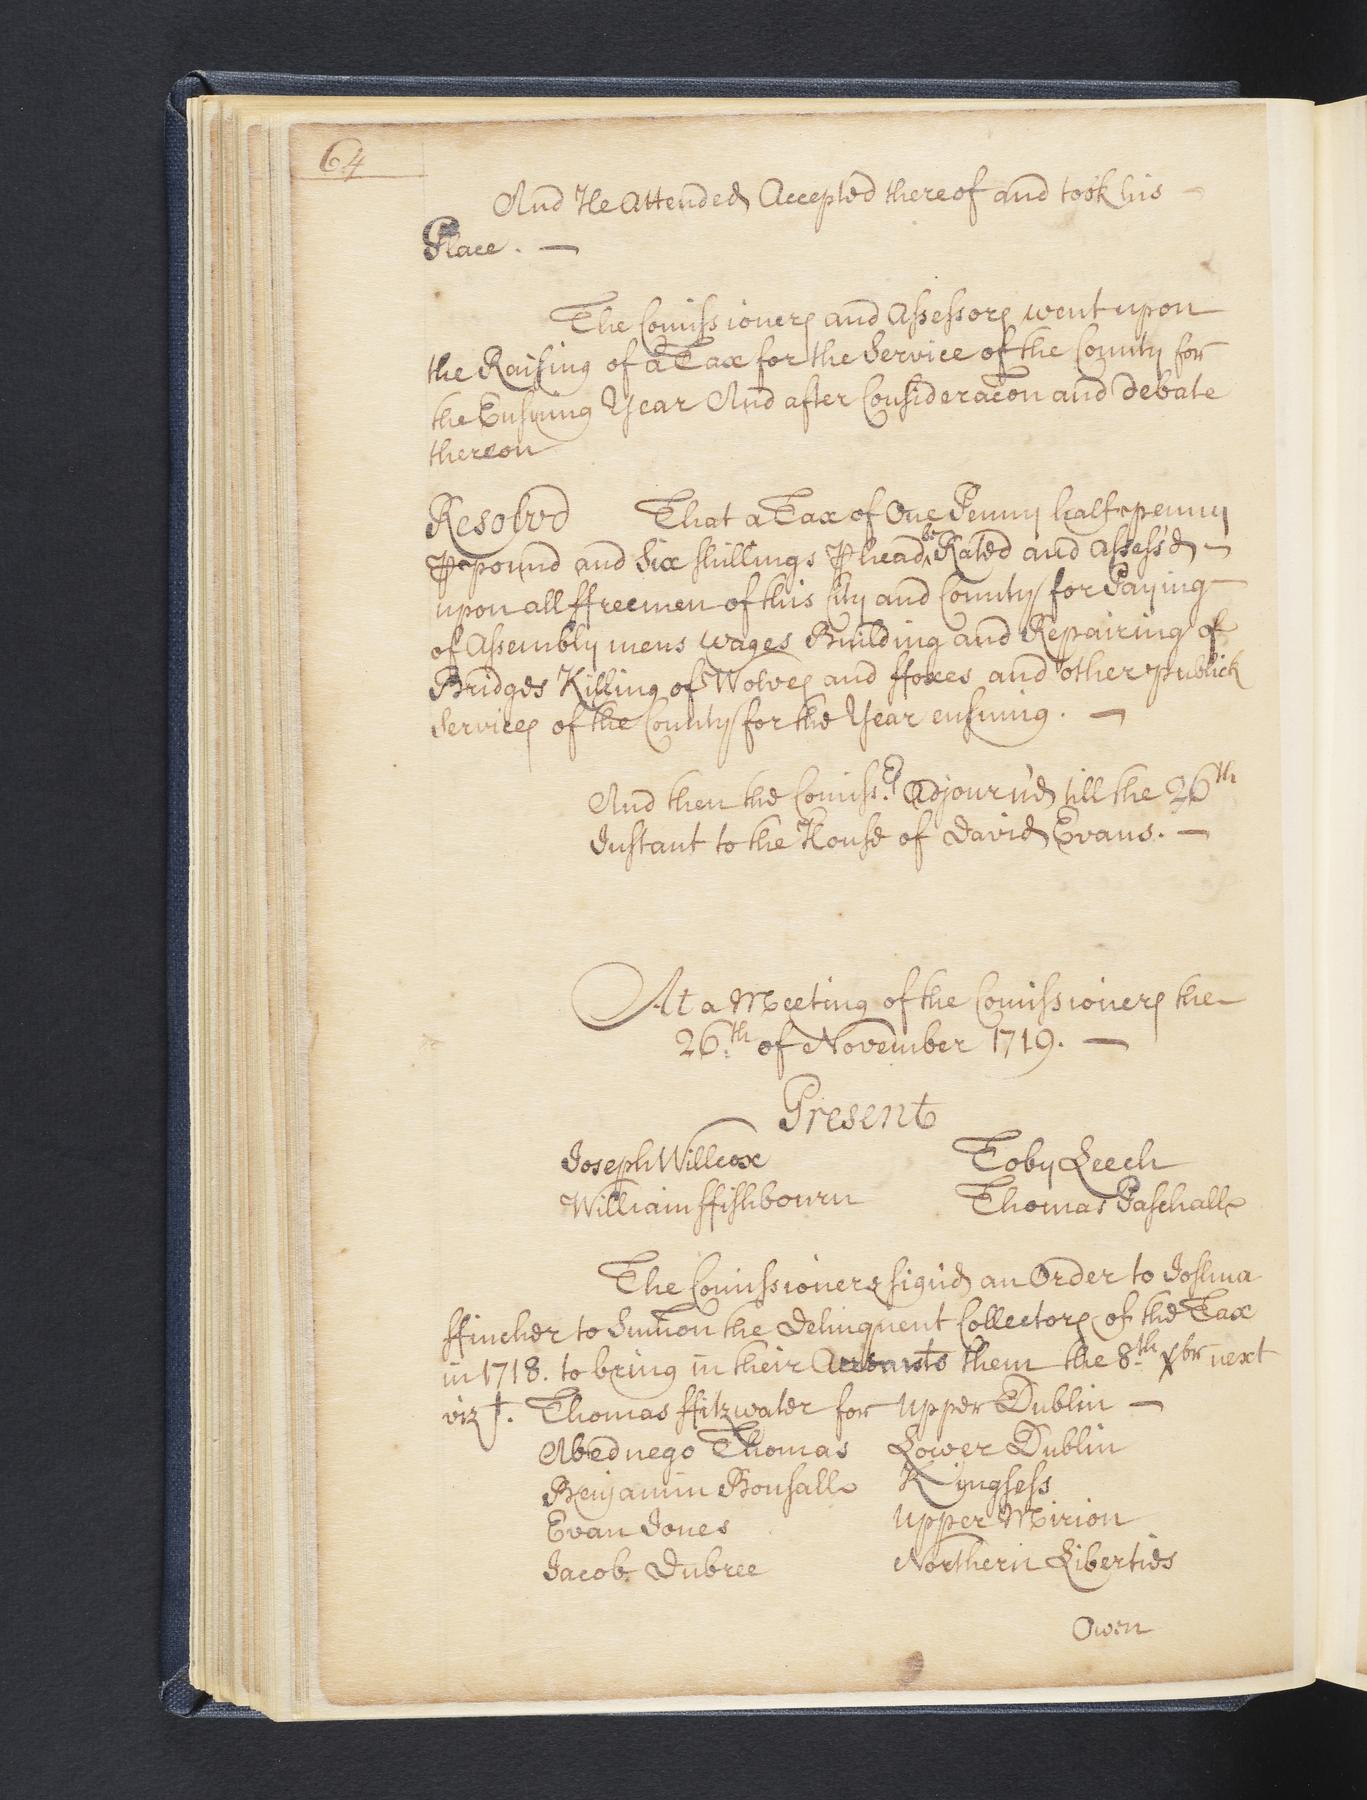 64
And He Attended Accepted thereof and took his
Place. —
The Comissioners and Assessors went upon
the Raising of a Tax for the Service of the County for
the Ensuing Year And after Consideracon and Debate
thereon
Resolvd That a Tax of One Penny half penny
⅌ pound and Six shillings ⅌ head be Rated and Assess'd
upon all ffreemen of this City and County for Paying
of Assembly mens wages Building and Repairing of
Bridges Killing of Wolves and ffoxes and other publick
Services of the County for the Year ensuing. —
And then the Comiss.rs Adjourn'd till the 26th
Instant to the House of David Evans. —
At a Meeting of the Comissioners the
26.th of November 1719. —
Present
Joseph Willcox Toby Leech
William ffishbourn Thomas Paschall
The Comissioners sign'd an Order to Joshua
ffincher to Sumon the Delinquent Collectors of the Tax
in 1718. to bring in their Accounts them the 8.th Xbr next
vizt. Thomas ffitzwater for Upper Dublin —
Abednego Thomas Lower Dublin
Benjamin Bonsall Kingsess
Evan Jones Upper Mirion
Jacob Dubree Northern Liberties
Owen